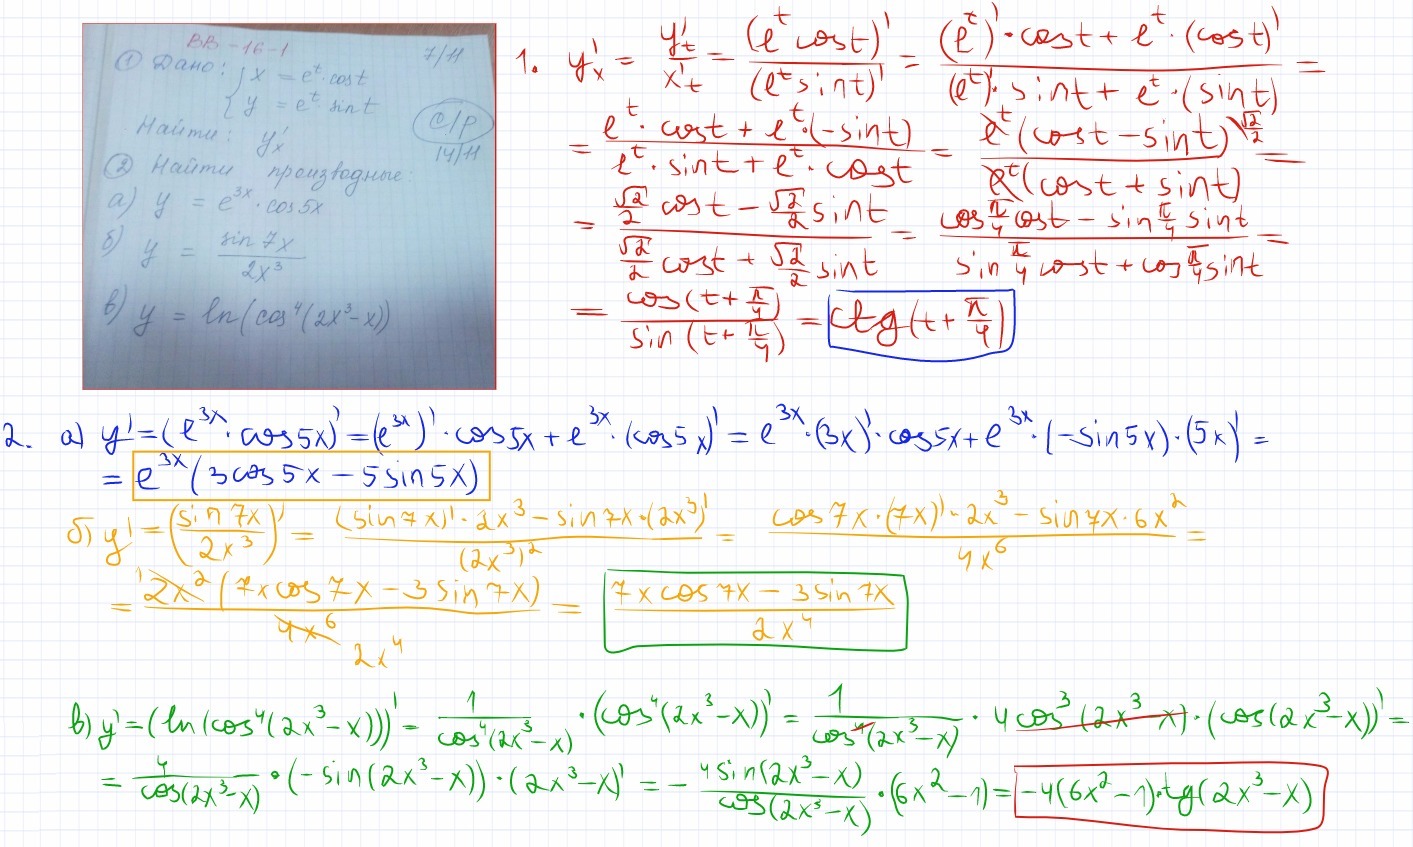 ВВ-16-1
7/11
① Дано: { x = e^t · cos t
y = e^t · sin t
Найти: y'_x
С/Р
14/11
② Найти производные:
а) y = e^{3x} · cos 5x
б) y = \frac{sin 7x}{2x^3}
в) y = ln(cos^4(2x^3-x))
1. y'_x = \frac{y'_t}{x'_t} = \frac{(e^t cos t)'}{(e^t sin t)'} = \frac{(e^t)' · cos t + e^t · (cos t)'}{(e^t)' · sin t + e^t · (sin t)} =
= \frac{e^t · cos t + e^t · (-sin t)}{e^t · sin t + e^t · cos t} = \frac{e^t (cos t - sin t)}{e^t (cos t + sin t)}^{\ \frac{√2}{2}} =
= \frac{\frac{√2}{2} cos t - \frac{√2}{2} sin t}{\frac{√2}{2} cos t + \frac{√2}{2} sin t} = \frac{cos \frac{π}{4} cos t - sin \frac{π}{4} sin t}{sin \frac{π}{4} cos t + cos \frac{π}{4} sin t} =
= \frac{cos (t + \frac{π}{4})}{sin (t + \frac{π}{4})} = ctg (t + \frac{π}{4})
2. а) y' = (e^{3x} · cos 5x)' = (e^{3x})' · cos 5x + e^{3x} · (cos 5x)' = e^{3x} · (3x)' · cos 5x + e^{3x} · (-sin 5x) · (5x)' =
= e^{3x} (3cos 5x - 5sin 5x)
б) y' = (\frac{sin 7x}{2x^3})' = \frac{(sin 7x)' · 2x^3 - sin 7x · (2x^3)'}{(2x^3)^2} = \frac{cos 7x · (7x)' · 2x^3 - sin 7x · 6x^2}{4x^6} =
= \frac{^1 2x^2 (7x cos 7x - 3 sin 7x)}{4x^6 \ 2x^4} = \frac{7x cos 7x - 3 sin 7x}{2x^4}
в) y' = (ln(cos^4(2x^3-x)))' = \frac{1}{cos^4(2x^3-x)} · (cos^4(2x^3-x))' = \frac{1}{cos^4(2x^3-x)} · 4cos^3(2x^3-x) · (cos(2x^3-x))' =
= \frac{4}{cos(2x^3-x)} · (-sin(2x^3-x)) · (2x^3-x)' = - \frac{4 sin(2x^3-x)}{cos(2x^3-x)} · (6x^2-1) = -4(6x^2-1) · tg(2x^3-x)